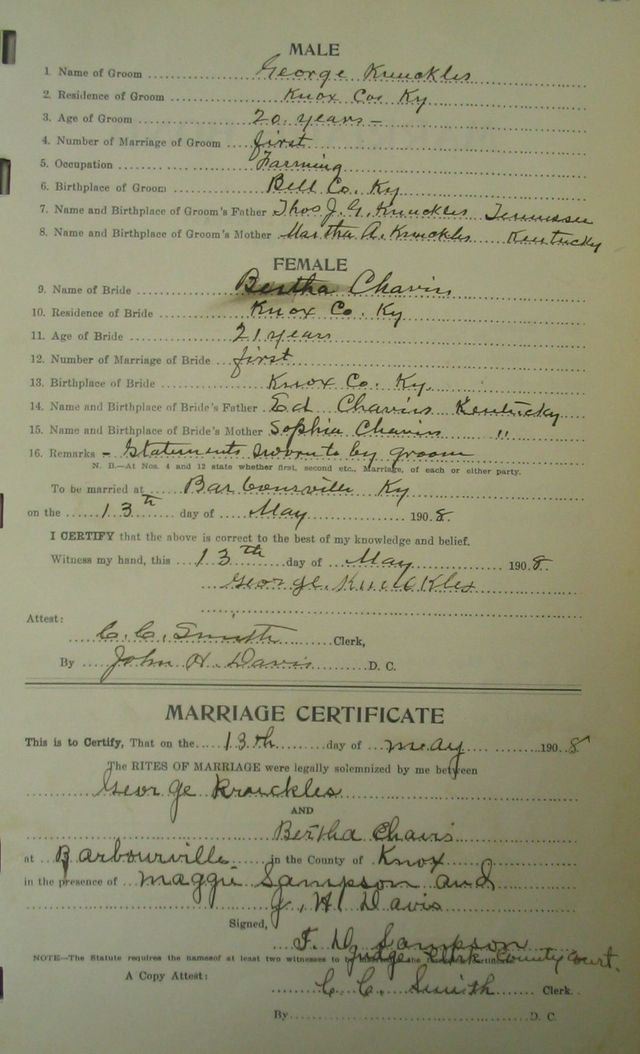 MALE
1. Name of Groom George Knuckles
2. Residence of Groom Knox Co. Ky
3. Age of Groom 20 years –
4. Number of Marriage of Groom first
5. Occupation Farming
6. Birthplace of Groom Bell Co. Ky
7. Name and Birthplace of Groom's Father Thos J. G. Knuckles Tennessee
8. Name and Birthplace of Groom's Mother Martha A. Knuckles Kentucky
FEMALE
9. Name of Bride Bertha Chavis
10. Residence of Bride Knox Co. Ky
11. Age of Bride 21 years
12. Number of Marriage of Bride first
13. Birthplace of Bride Knox Co. Ky.
14. Name and Birthplace of Bride's Father Ed Chavis Kentucky
15. Name and Birthplace of Bride's Mother Sophia Chavis "
16. Remarks – Statements sworn to by groom
N. B.—At Nos. 4 and 12 state whether first, second etc., Marriage, of each or either party.
To be married at Barbourville Ky
on the 13th day of May 1908.
I CERTIFY that the above is correct to the best of my knowledge and belief.
Witness my hand, this 13th day of May 1908.
George Knuckles
Attest:
C. C. Smith Clerk,
By John H. Davis D. C.
MARRIAGE CERTIFICATE
This is to Certify, That on the 13th day of may 1908
The RITES OF MARRIAGE were legally solemnized by me between
George Knuckles
AND
Bertha Chavis
at Barbourville in the County of Knox
in the presence of Maggie Sampson and
J. H. Davis
Signed,
F. D. Sampson
NOTE—The Statute requires the names of at least two witnesses to be
Judge County Court.
A Copy Attest:
C. C. Smith Clerk.
By D. C.